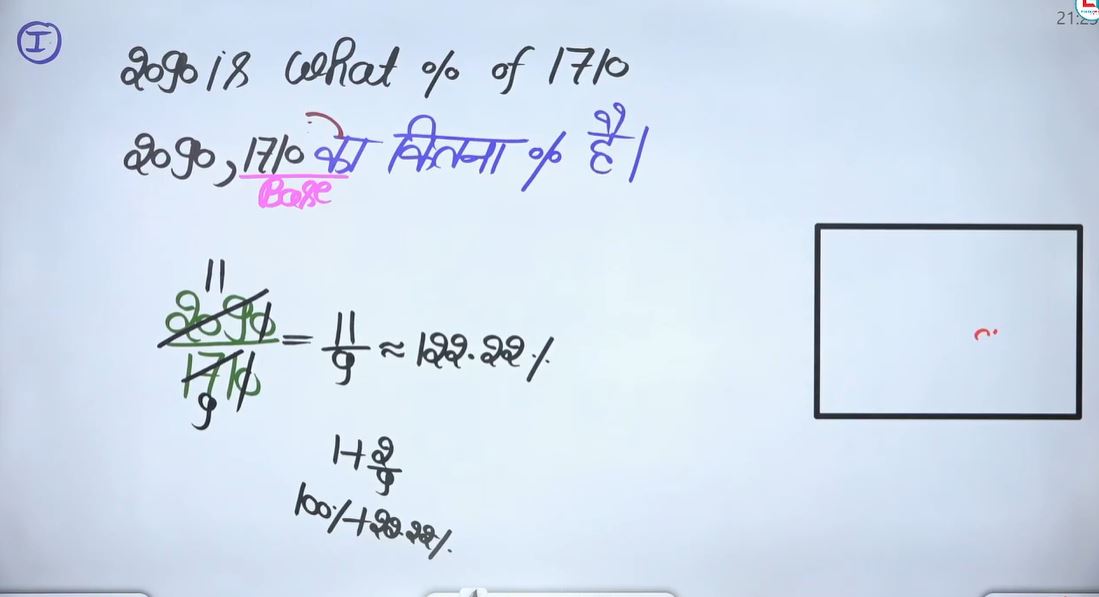 I
2090 is what % of 1710
2090, 1710 का कितना % है।
Base
11
2090/1710 = 11/9 ≈ 122.22%
9
1+2/9
100%+22.22%